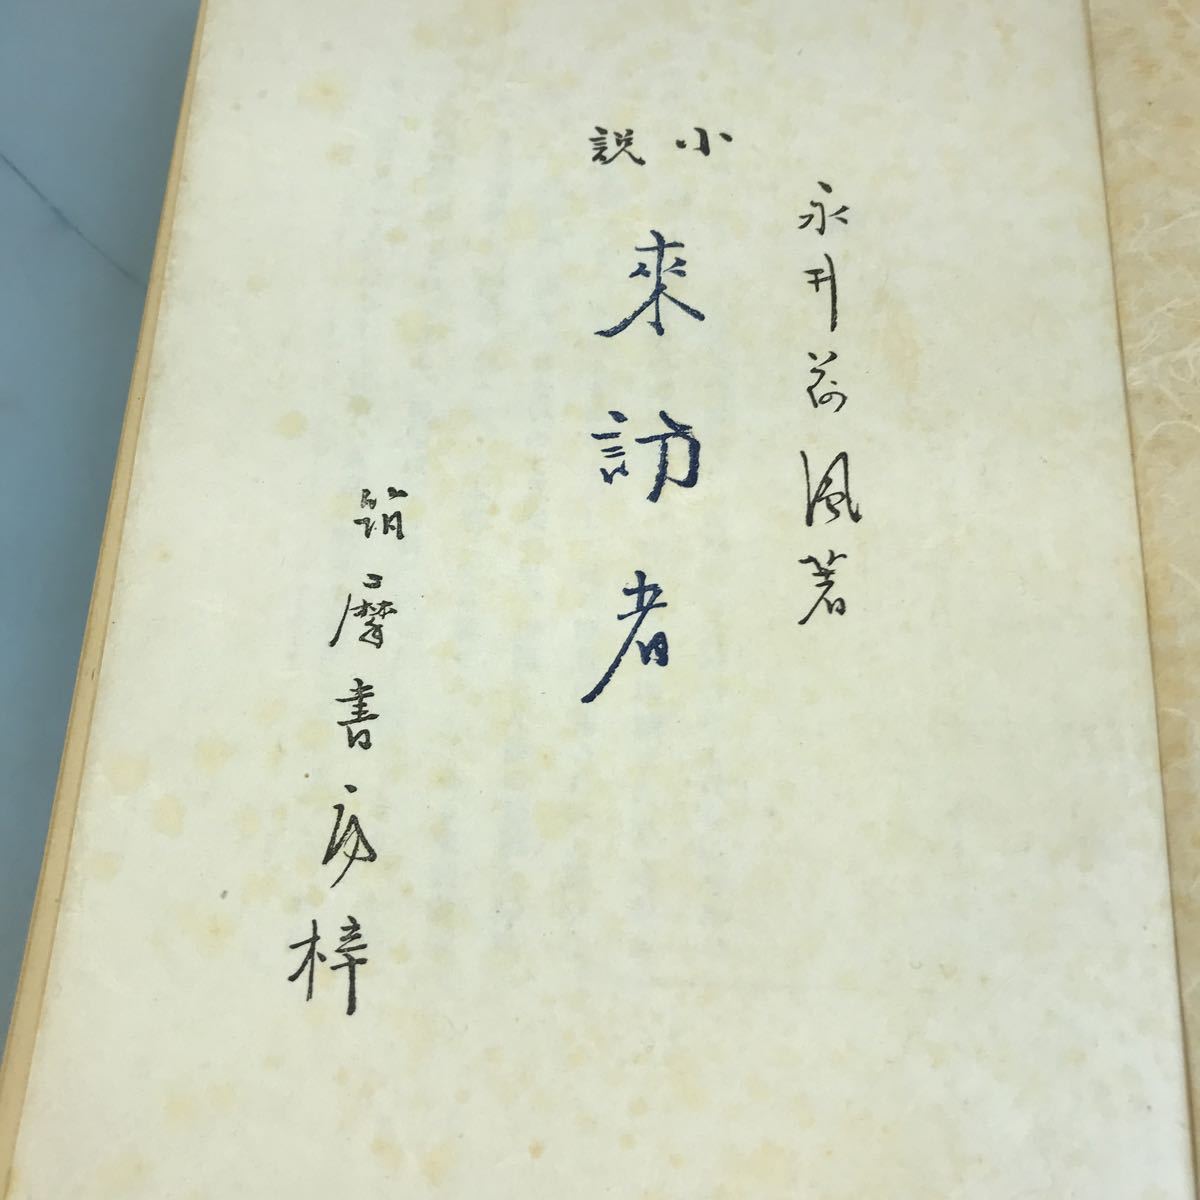 永井荷風著
小說
來訪者
筑摩書房梓